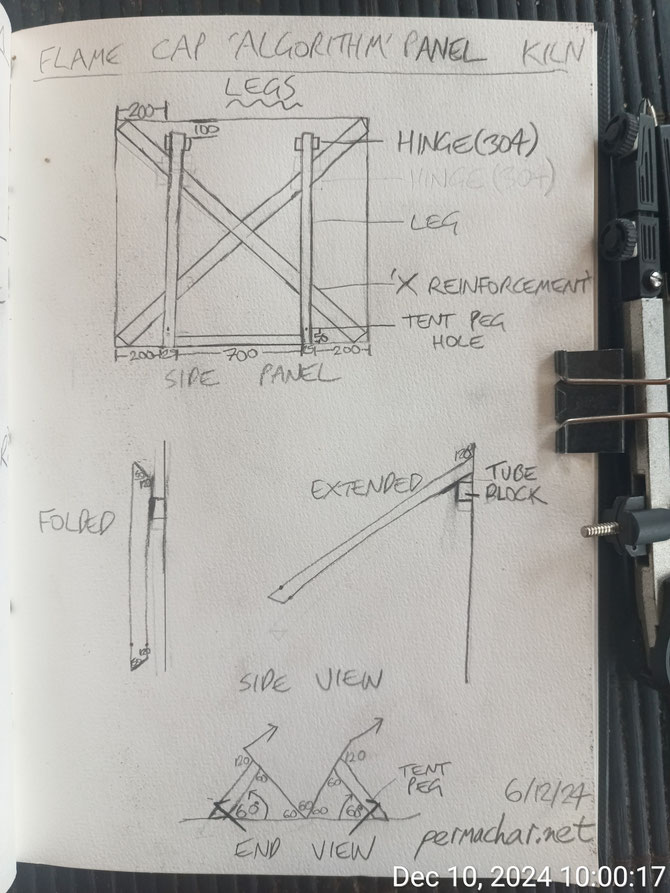 FLAME CAP 'ALGORITHM' PANEL KILN
LEGS
200
100
HINGE (304)
HINGE (304)
LEG
'X REINFORCEMENT'
TENT PEG
HOLE
50
200 25 700 25 200
SIDE PANEL
FOLDED
60
120
60 120
EXTENDED
120
TUBE
BLOCK
SIDE VIEW
120
60
60°
60 60 60
60
120
60°
TENT
PEG
END VIEW
6/12/24
permachar.net
Dec 10, 2024 10:00:17